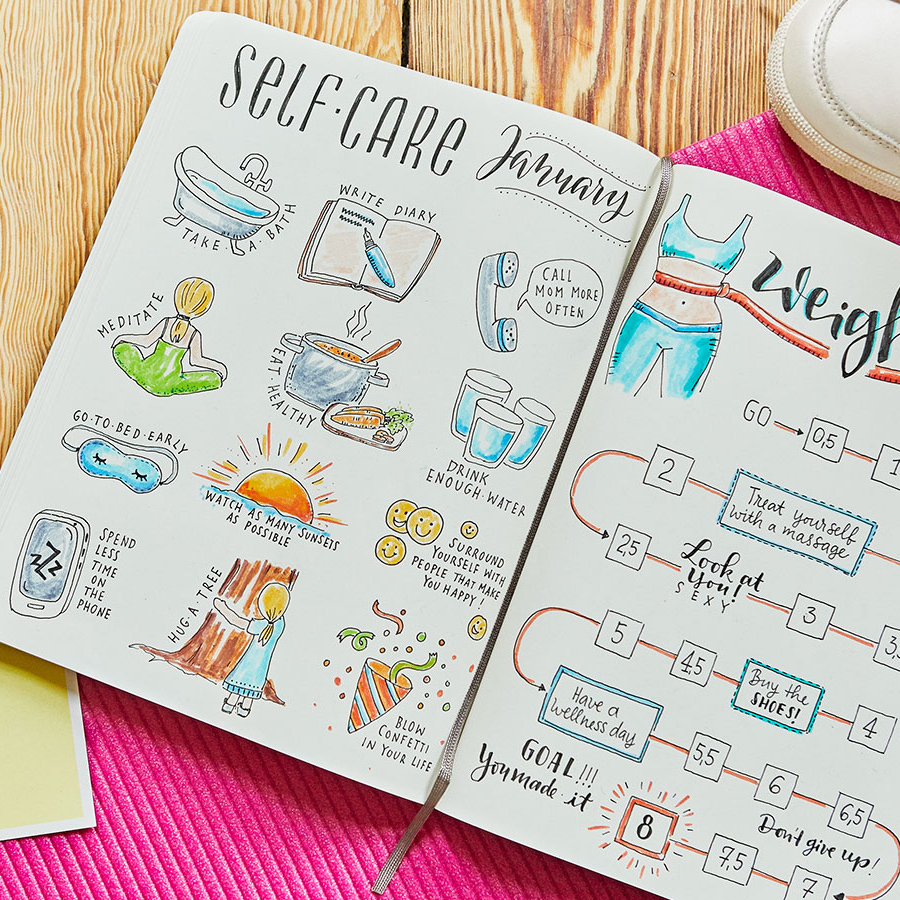 SELF·CARE
January
TAKE·A·BATH
WRITE DIARY
CALL
MOM MORE
OFTEN
MEDITATE
EAT HEALTHY
DRINK
ENOUGH·WATER
GO·TO·BED·EARLY
WATCH AS MANY SUNSETS
AS POSSIBLE
SURROUND
YOURSELF WITH
PEOPLE THAT MAKE
YOU HAPPY!
zzZ
SPEND
LESS
TIME
ON
THE
PHONE
HUG·A·TREE
BLOW
CONFETTI
IN YOUR LIFE
Weigh
GO
0,5
1
2
Treat yourself
with a massage
2,5
Look at
you!
SEXY
3
3,5
5
4,5
Buy the
SHOES!
4
Have a
wellness day
5,5
6
6,5
GOAL!!!
You made·it
8
Don't give up!
7,5
7